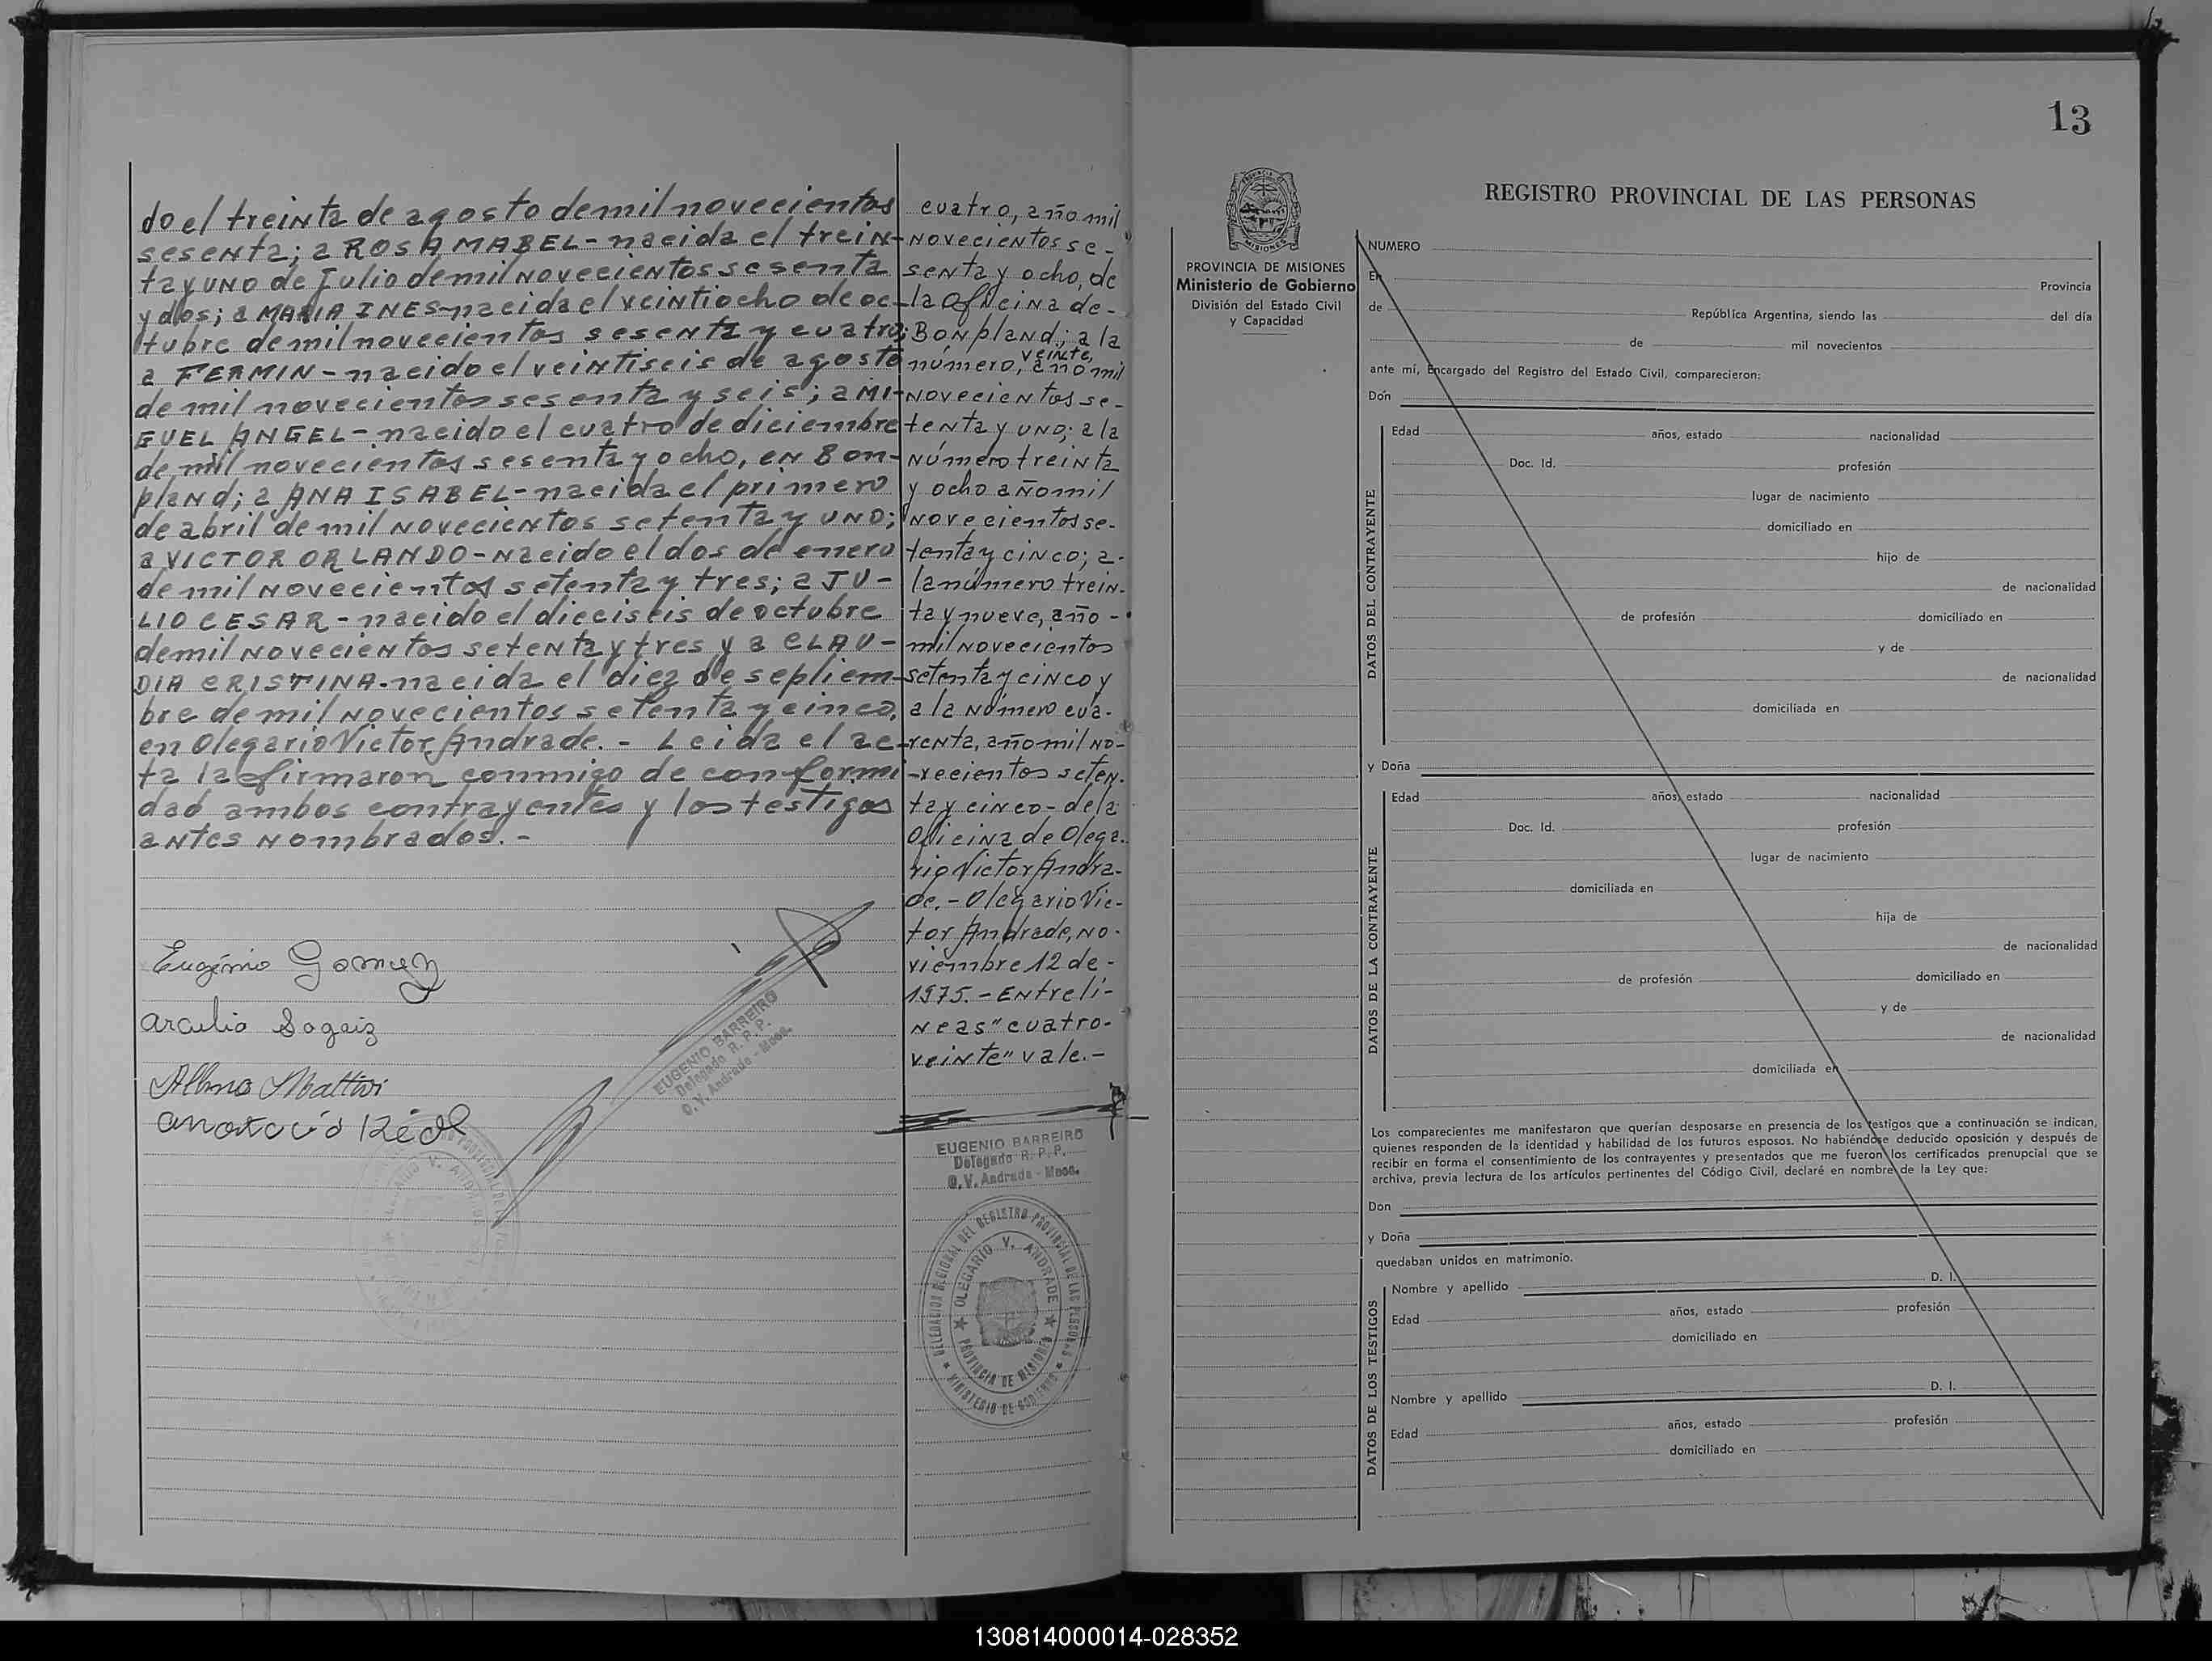 do el treinta de agosto de mil novecientos
sesenta; a ROSA MABEL - nacida el trein-
ta y uno de Julio de mil novecientos sesenta
y dos; a MARIA INES - nacida el veintiocho de oc-
tubre de mil novecientos sesenta y cuatro;
a FERMIN - nacido el veintiseis de agosto
de mil novecientos sesenta y seis; a MI-
GUEL ANGEL - nacido el cuatro de diciembre
de mil novecientos sesenta y ocho, en Bon-
pland; a ANA ISABEL - nacida el primero
de abril de mil novecientos setenta y uno;
a VICTOR ORLANDO - nacido el dos de enero
de mil novecientos setenta y tres; a JU-
LIO CESAR - nacido el dieciseis de octubre
de mil novecientos setenta y tres y a CLAU-
DIA CRISTINA - nacida el diez de septiem-
bre de mil novecientos setenta y cinco,
en Olegario Victor Andrade. - Leida el ac-
ta la firmaron conmigo de conformi
dad ambos contrayentes y los testigos
antes nombrados. -
Eugenio Gomez
Albino Mattivi
EUGENIO BARREIRO
Delegado R. P. P.
O. V. Andrade - Mnes.
cuatro, año mil
novecientos se-
senta y ocho, de
la Oficina de-
Bonpland; a la
veinte,
número, año mil
novecientos se-
tenta y uno; a la
número treinta
y ocho año mil
novecientos se-
tenta y cinco; a-
la número trein-
ta y nueve, año -
mil novecientos
setenta y cinco y
a la número cua-
renta, año mil no-
vecientos seten-
ta y cinco - de la
Oficina de Olega-
rio Victor Andra-
de. - Olegario Vic-
tor Andrade, no-
viembre 12 de -
1975. - Entreli-
neas "cuatro-
veinte" vale. -
EUGENIO BARREIRO
Delegado R. P. P.
O. V. Andrade - Mnes.
DELEGACION REGIONAL DEL REGISTRO PROVINCIAL DE LAS PERSONAS
★ OLEGARIO V. ANDRADE ★
PROVINCIA DE MISIONES
★ MINISTERIO DE GOBIERNO ★
13
PROVINCIA DE MISIONES
Ministerio de Gobierno
División del Estado Civil
y Capacidad
REGISTRO PROVINCIAL DE LAS PERSONAS
NUMERO
En Provincia
de República Argentina, siendo las del día
de mil novecientos
ante mí, Encargado del Registro del Estado Civil, comparecieron:
Don
DATOS DEL CONTRAYENTE
Edad años, estado nacionalidad
Doc. Id. profesión
lugar de nacimiento
domiciliado en
hijo de
de nacionalidad
de profesión domiciliado en
y de
de nacionalidad
domiciliada en
y Doña
DATOS DE LA CONTRAYENTE
Edad años, estado nacionalidad
Doc. Id. profesión
lugar de nacimiento
domiciliada en
hija de
de nacionalidad
de profesión domiciliado en
y de
de nacionalidad
domiciliada en
Los comparecientes me manifestaron que querían desposarse en presencia de los testigos que a continuación se indican,
quienes responden de la identidad y habilidad de los futuros esposos. No habiéndose deducido oposición y después de
recibir en forma el consentimiento de los contrayentes y presentados que me fueron los certificados prenupcial que se
archiva, previa lectura de los artículos pertinentes del Código Civil, declaré en nombre de la Ley que:
Don
y Doña
quedaban unidos en matrimonio.
DATOS DE LOS TESTIGOS
Nombre y apellido D. I.
Edad años, estado profesión
domiciliado en
Nombre y apellido D. I.
Edad años, estado profesión
domiciliado en
130814000014-028352